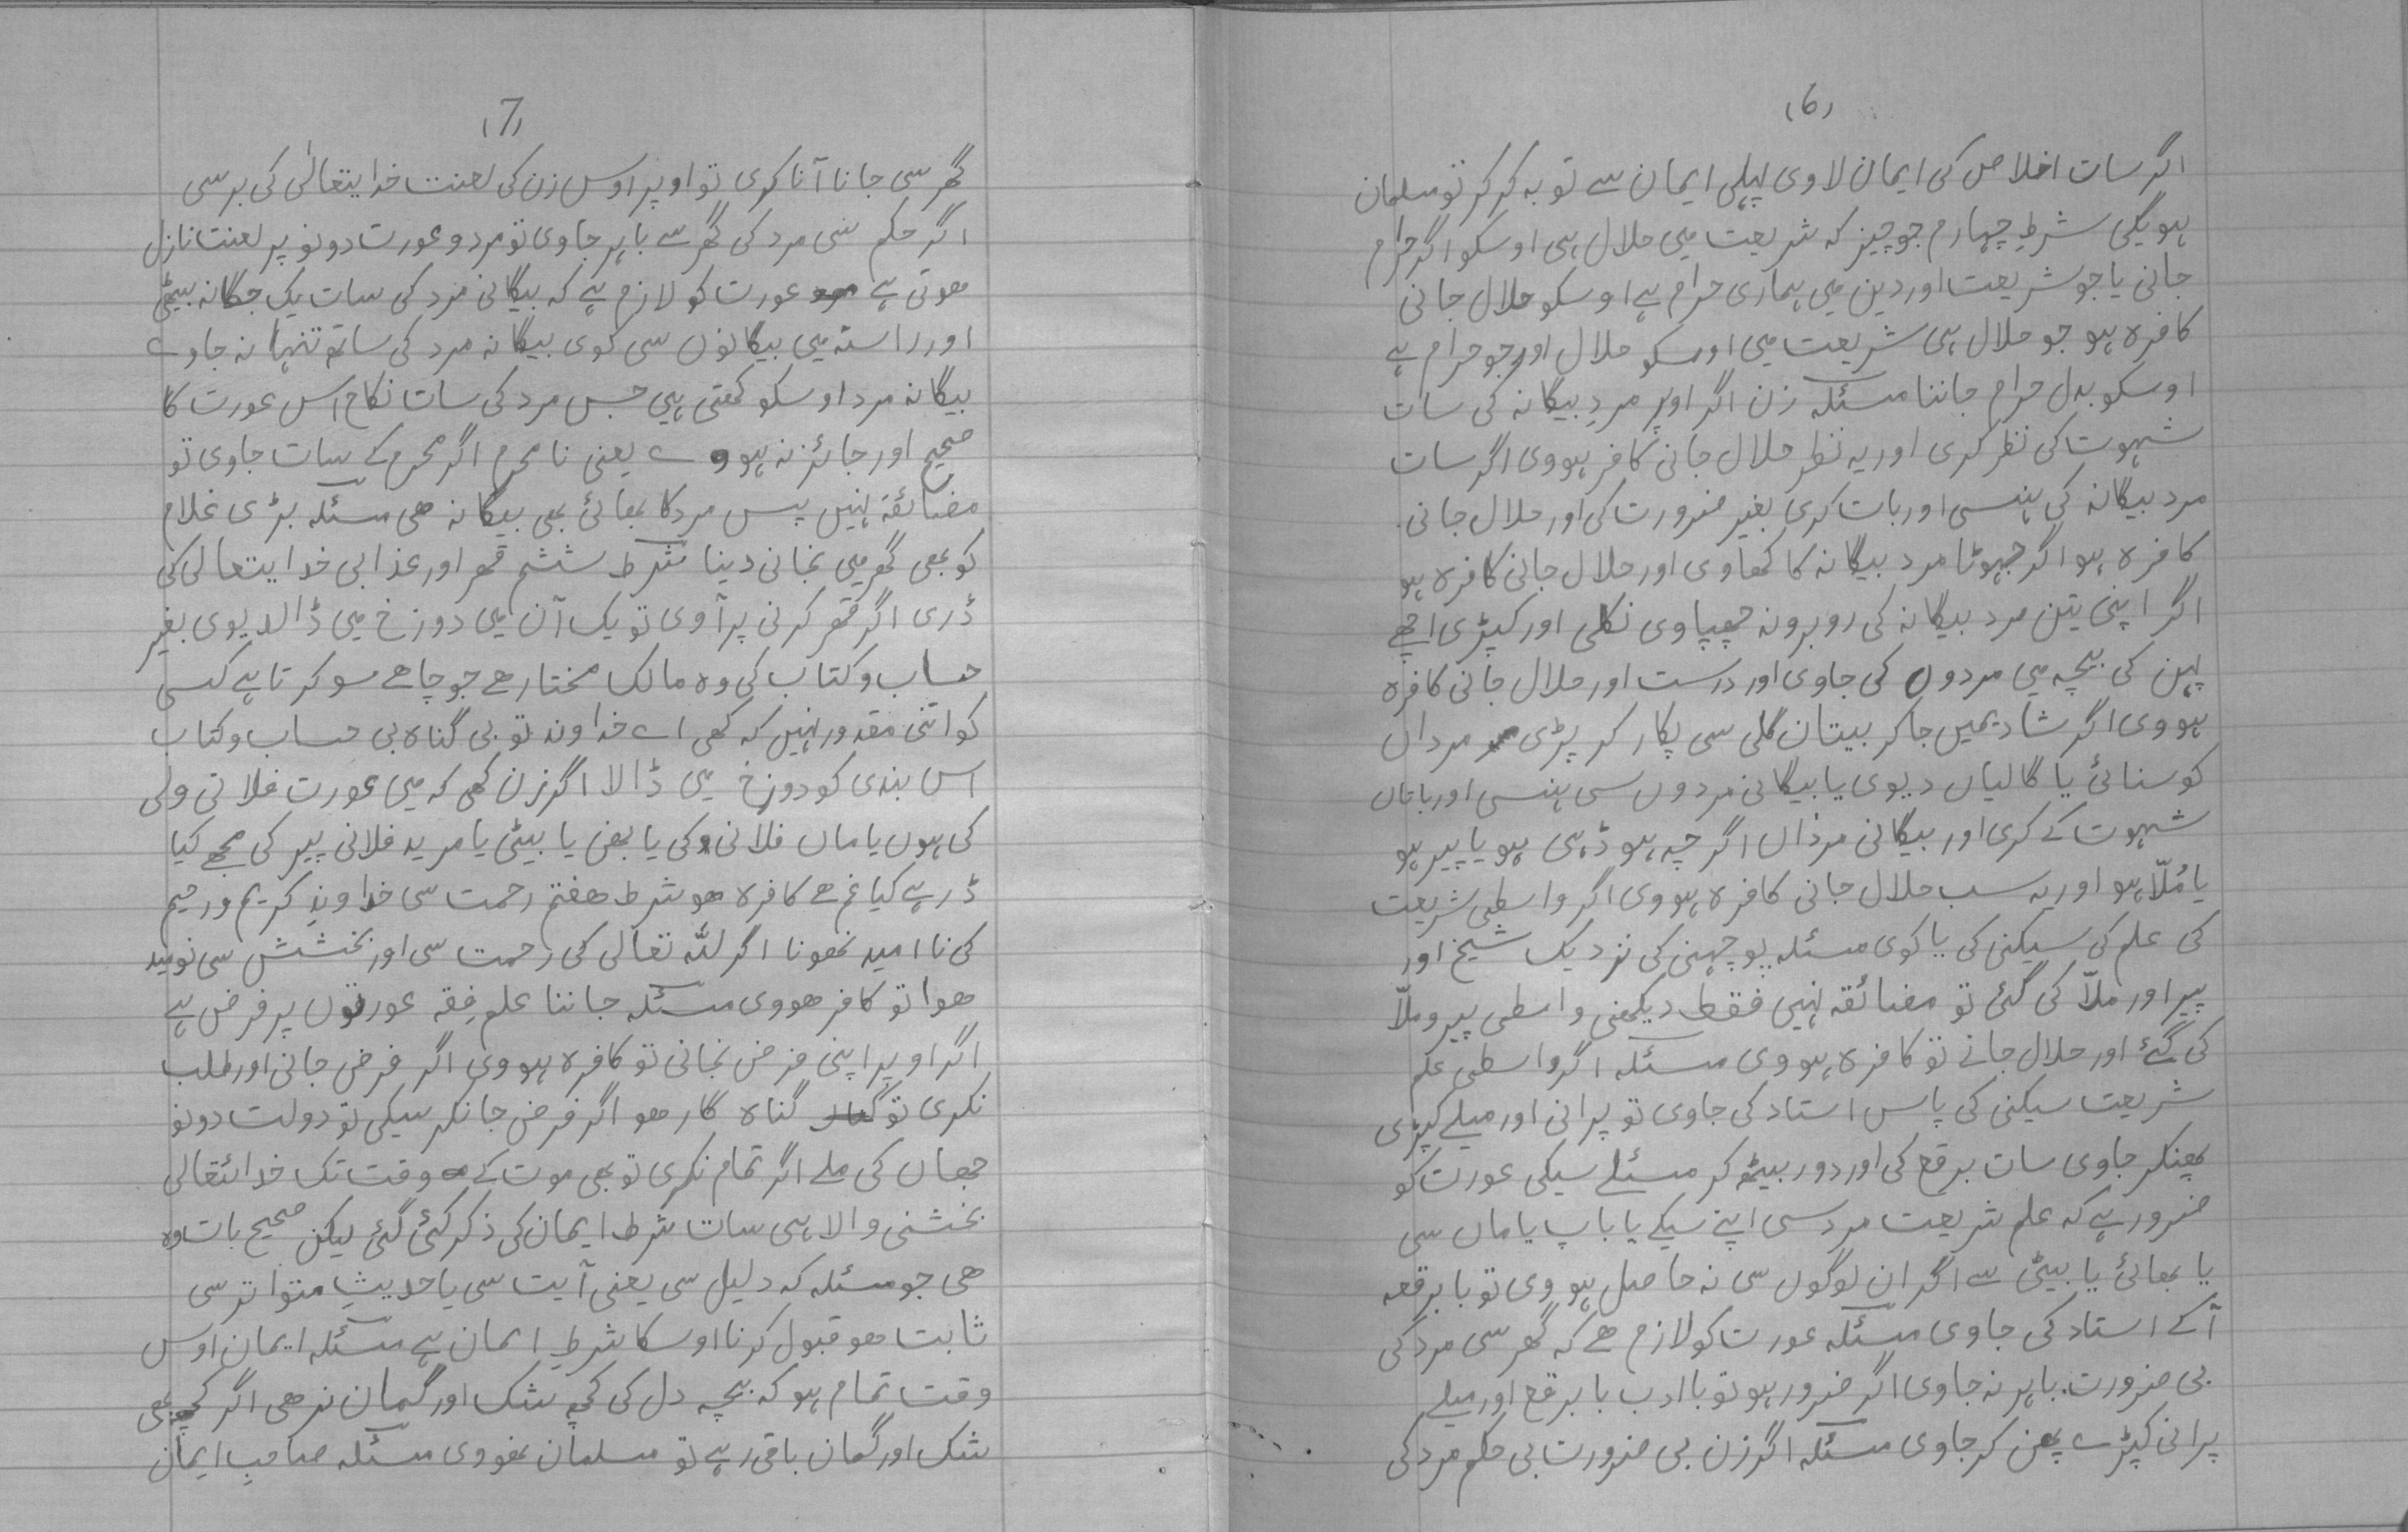 (6)
اگر سات اخلاص کی ایمان لاوی پہلی ایمان سے توبہ کر کر تو مسلمان
ہویگی شرطِ چہارم جو چیز کہ شریعت میں حلال ہی اوسکو اگر حرام
جانی یا جو شریعت اور دین میں ہماری حرام ہے اوسکو حلال جانی
کافرہ ہو جو حلال ہی شریعت میں اوسکو حلال اور جو حرام ہے
اوسکو بدل حرام جاننا مسئلہ زن اگر اوپر مردِ بیگانہ کی سات
شہوت کی نظر کری اور یہ نظر حلال جانی کافر ہووی اگر سات
مرد بیگانہ کی ہنسی اور بات کری بغیر ضرورت کی اور حلال جانی
کافرہ ہو اگر جہوٹا مرد بیگانہ کا کھاوی اور حلال جانی کافرہ ہو
اگر اپنی تین مرد بیگانہ کی روبرو نہ چھپاوی نکلی اور کپڑی اچھے
پہن کی بیچہ میں مردوں کی جاوی اور درست اور حلال جانی کافرہ
ہووی اگر شادیمیں جاکر بیتان گلی سی پکار کر پڑی مرداں
کو سنائی یا گالیاں دیوی یا بیگانی مردوں سی ہنسی اور باتاں
شہوت کے کری اور بیگانی مرداں اگرچہ ہوڈہی ہو یا پیر ہو
یا مُلّا ہو اور یہ سب حلال جانی کافرہ ہووی اگر واسطی شریعت
کی علم کی سیکنی کی یا کوی مسئلہ پوچہنی کی نزدیک شیخ اور
پیر اور ملاّ کی گئی تو مضائقہ نہیں فقط دیکھنی واسطی پیر و ملاّ
کی گئی اور حلال جانے تو کافرہ ہووی مسئلہ اگر واسطی علم
شریعت سیکنی کی پاس استاد کی جاوی تو پرانی اور میلے کپڑی
پھنکر جاوی سات برقع کی اور دور بیٹھ کر مسئلے سیکی عورت کو
ضرور ہے کہ علم شریعت مرد سی اپنے سیکے یا باپ یا ماں سی
یا بھائی یا بیٹی سے اگر ان لوگوں سی نہ حاصل ہووی تو با برقعہ
آگے استاد کی جاوی مسئلہ عورت کو لازم ھے کہ گھر سی مرد کی
بی ضرورت باہر نہ جاوی اگر ضرور ہو تو با ادب با برقع اور میلے
پرانی کپڑے پھن کر جاوی مسئلہ اگر زن بی ضرورت بی حکم مرد کی
(7)
گھر سی جانا آنا کری تو اوپر اوس زن کی لعنت خدایتعالیٰ کی برسی
اگر حکم سی مرد کی گھر سے باہر جاوی تو مرد و عورت دونو پر لعنت نازل
ھوتی ہے عورت کو لازم ہے کہ بیگانی مرد کی سات یک جگا نہ بیٹھی
اور راستہ میں بیگانوں سی کوی بیگانہ مرد کی ساتھ تنہا نہ جاوے
بیگانہ مرد اوسکو کھتی ہیں جس مرد کی سات نکاح اس عورت کا
صحیح اور جائز نہ ہووے یعنی نا محرم اگر محرم کے سات جاوی تو
مضائقہ نہیں پس مرد کا بھائی بھی بیگانہ ھی مسئلہ بڑی غلام
کو بھی گھر میں نجانی دینا شرط ششم قھر اور عذابی خدایتعالی کی
ڈری اگر قھر کرنی پر آوی تو یک آن میں دوزخ میں ڈالدیوی بغیر
حساب و کتاب کی وہ مالک مختار ھے جو چاھے سو کرتا ہے کسی
کو اتنی مقدور نہیں کہ کھی اے خداوند تو بی گناہ بی حساب و کتاب
اس بندی کو دوزخ میں ڈالا اگر زن کھی کہ میں عورت فلانی ولی
کی ہوں یا ماں فلانی کی یا بھن یا بیٹی یا مرید فلانی پیر کی مجھے کیا
ڈر ہے کیا غم ھے کافرہ ھو شرط ھفتم رحمت سی خداوندِ کریم و رحیم
کی نا امید نھونا اگر للہ تعالی کی رحمت سی اور بخشش سی نومید
ھوا تو کافر ھووی مسئلہ جاننا علمِ فقہ عورتوں پر فرض ہے
اگر اوپر اپنی فرض نجانی تو کافرہ ہووی اگر فرض جانی اور طلب
نکری تو گناہ گار ھو اگر فرض جانکر سیکی تو دولت دونو
جھاں کی ملے اگر تمام نکری تو بھی موت کے وقت تک خدائتعالی
بخشنی والا ہی سات شرط ایمان کی ذکر کئی گئی لیکن صحیح بات وہ
ھی جو مسئلہ کہ دلیل سی یعنی آیت سی یا حدیثِ متواتر سی
ثابت ھو قبول کرنا اوسکا شرطِ ایمان ہے مسئلہ ایمان اوس
وقت تمام ہو کہ بیچہ دل کی کچہ شک اور گمان نرھی اگر کچھ بھی
شک اور گمان باقی رہے تو مسلمان نھووی مسئلہ صاحبِ ایمان